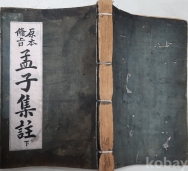 原本
備旨
孟子集註
下
kobay